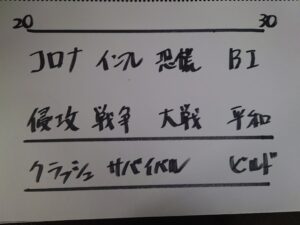 20 30
コロナ インフル 恐慌 BI
侵攻 戦争 大戦 平和
クラッシュ サバイバル ビルド